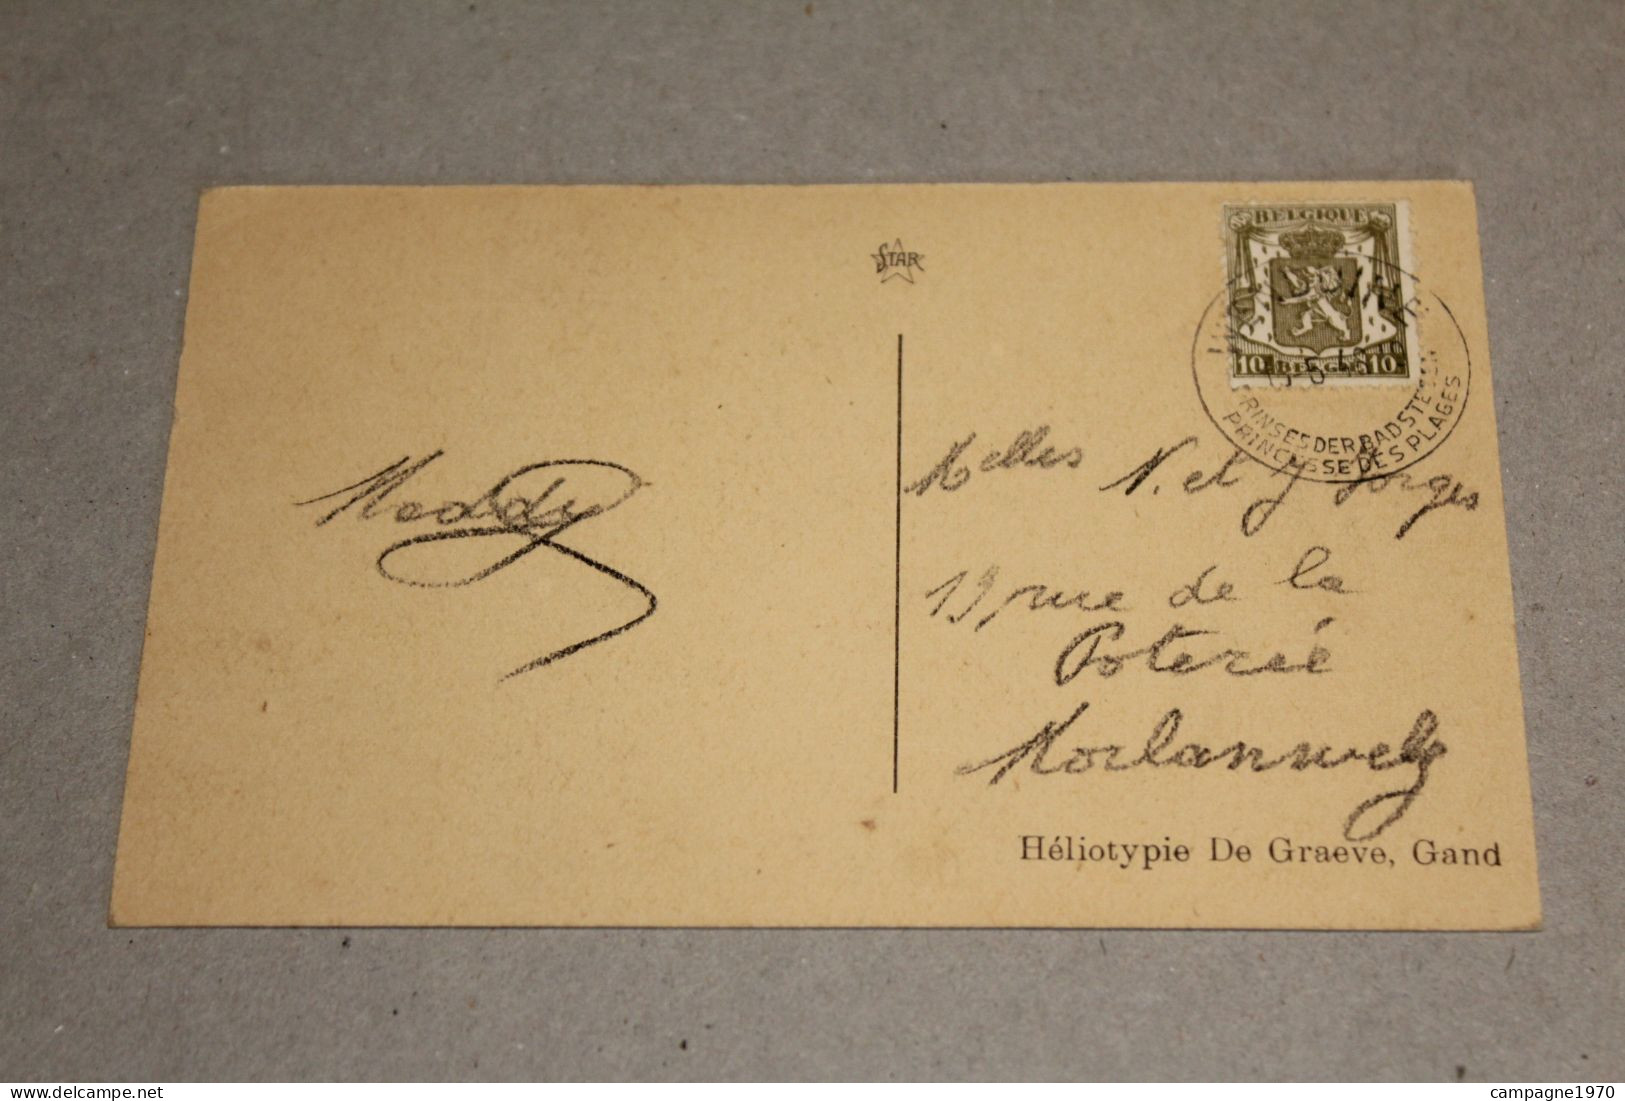 STAR
BELGIQUE
WENDUINE
10 BELGIE 10
5-48
PRINSES DER BADSTEDEN
PRINCESSE DES PLAGES
Maddy
Melles N. et J Sorges
19, rue de la
Poterie
Morlanwelz
Héliotypie De Graeve, Gand
www.delcampe.net
campagne1970